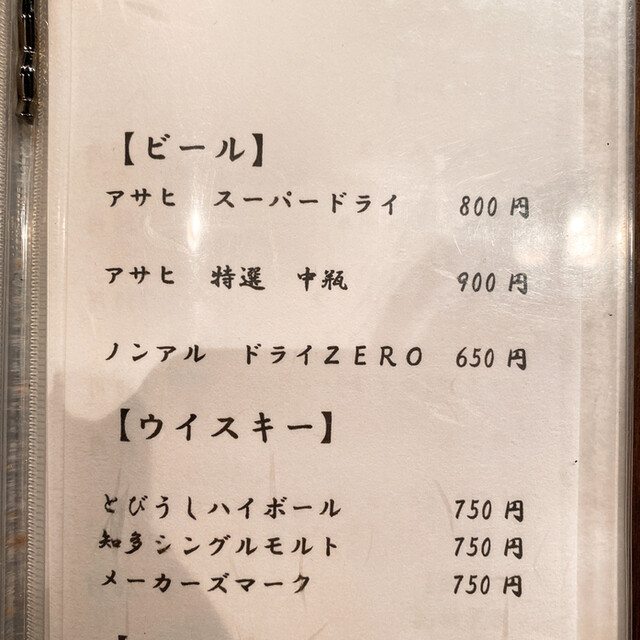 【ビール】
アサヒ　スーパードライ　800円
アサヒ　特選　中瓶　900円
ノンアル　ドライZERO　650円
【ウイスキー】
とびうしハイボール　750円
知多シングルモルト　750円
メーカーズマーク　750円